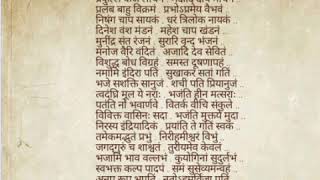 प्रलंब बाहु विक्रमं . प्रभोऽप्रमेय वैभवं .
निषंग चाप सायकं . धरं त्रिलोक नायकं .
दिनेश वंश मंडनं . महेश चाप खंडनं .
मुनींद्र संत रंजनं . सुरारि वृन्द भंजनं .
मनोज वैरि वंदितं . अजादि देव सेवितं .
विशुद्ध बोध विग्रहं . समस्त दूषणापहं .
नमामि इंदिरा पतिं . सुखाकरं सतां गतिं .
भजे सशक्ति सानुजं . शची पति प्रियानुजं .
त्वदंघ्रि मूल ये नरः . भजंति हीन मत्सराः .
पतंति नो भवार्णवे . वितर्क वीचि संकुले .
विविक्त वासिनः सदा . भजंति मुक्तये मुदा .
निरस्य इंद्रियादिकं . प्रयांति ते गतिं स्वकं .
तमेकमद्भुतं प्रभुं . निरीहमीश्वरं विभुं .
जगद्गुरुं च शाश्वतं . तुरीयमेव केवलं .
भजामि भाव वल्लभं . कुयोगिनां सुदुर्लभं .
स्वभक्त कल्प पादपं . समं सुसेव्यमन्वहं .